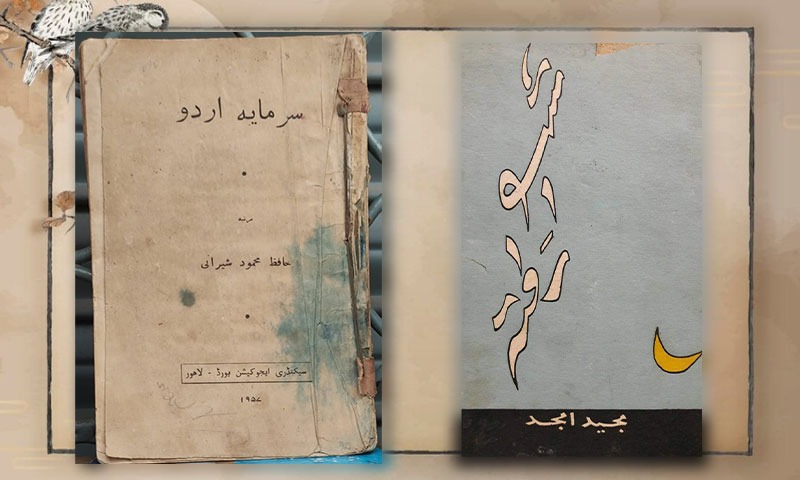 سرمایہ اردو
مرتبہ
حافظ محمود شیرانی
سیکنڈری ایجوکیشن بورڈ - لاہور
۱۹۵۷
شبِ رفتہ
مجید امجد